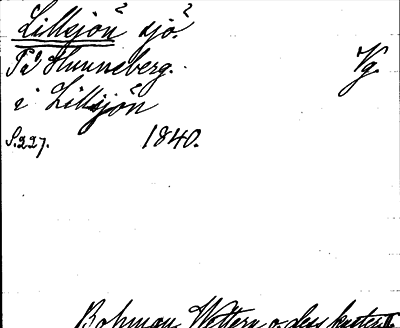 Lillsjön? sjö?
På Hunneberg. Vg.
i Lillsjön
S.227. 1840.
Bohman, Wettern o. dess kuster.